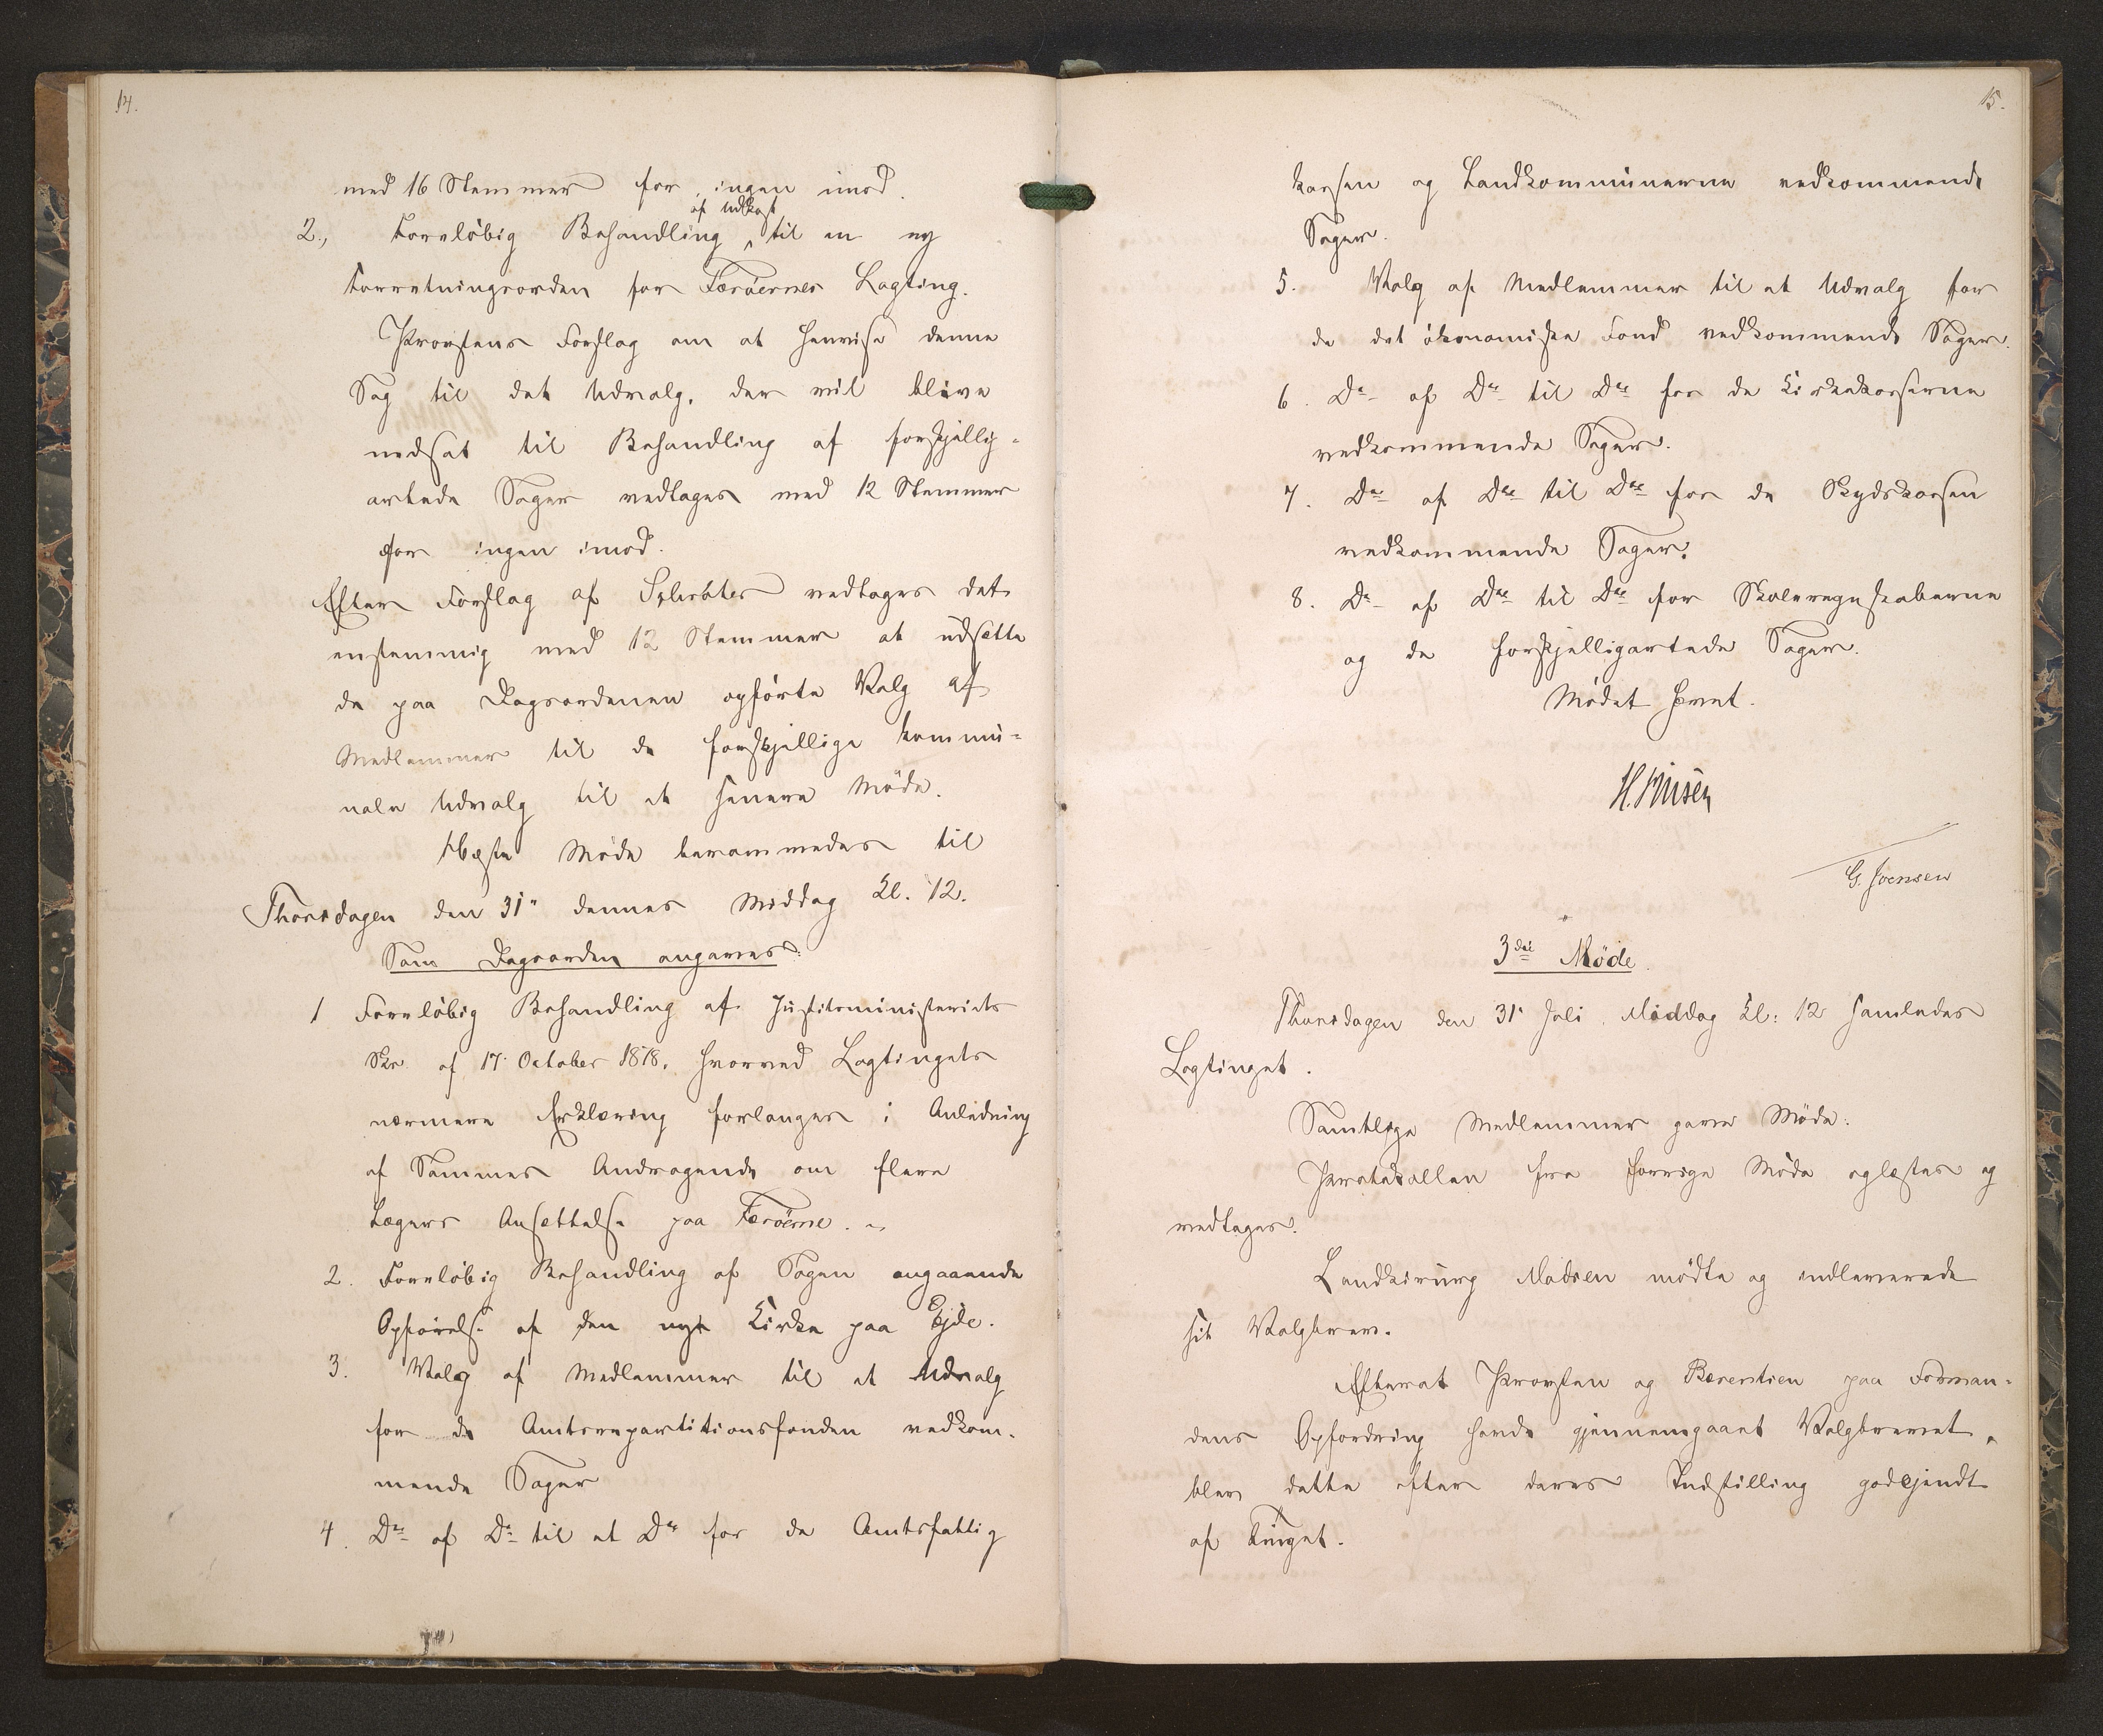 14.
med 16 Stemmer for, ingen imod.
2., Foreløbig Behandling af Udkast til en ny
Forretningsorden for Færøernes Lagting.
Provstens Forslag om at henvise denne
Sag til det Udvalg, der vil blive
nedsat til Behandling af forskjellig-
artede Sager vedtages med 12 Stemmer
for ingen imod.
Efter Forslag af Schrøter vedtages det
enstemmig med 12 Stemmer at udsætte
de paa Dagsordenen opførte Valg af
Medlemmer til de forskjellige kommu-
nale Udvalg til et senere Møde.
Næste Møde berammedes til
Thorsdagen den 31' dennes Middag Kl. 12.
Som Dagsorden angaves:
1 Foreløbig Behandling af Justitsministeriets
Skr. af 17. October 1878, hvorved Lagtingets
nærmere Erklæring forlanges i Anledning
af Sammes Andragende om flere
Lægers Ansættelse paa Færøerne.
2. Foreløbig Behandling af Sagen angaaende
Opførelse af den nye Kirke paa Ejde.
3. Valg af Medlemmer til et Udvalg
for de Amtsrepartitionsfonden vedkom-
mende Sager
4. Do af Do til et Do for de Amtsfattig
15.
kassen og Landkommunerne vedkommende
Sager.
5. Valg af Medlemmer til et Udvalg for
de det økonomiske Fond vedkommende Sager.
6. Do af Do til Do for de Kirkekasserne
vedkommende Sager.
7. Do af Do til Do for de Skydskassen
vedkommende Sager.
8. Do af Do til Do for Skoleregnskaberne
og de forskjelligartede Sager.
Mødet hævet.
G. Joensen
3die Møde.
Thorsdagen den 31' Juli, Middag Kl: 12 samledes
Lagtinget.
Samtlige Medlemmer gave Møde.
Protokollen fra forrige Møde oplæstes og
vedtages.
Landkirurg Madsen mødte og indleverede
sit Valgbrev.
Efterat Provsten og Bærentsen paa Forman-
dens Opfordring havde gjennemgaaet Valgbrevet,
blev dette efter deres Indstilling godkjendt
af Tinget.